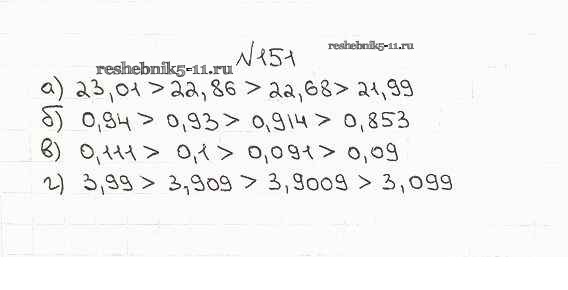 №151
reshebnik5-11.ru
reshebnik5-11.ru
а) 23,01 > 22,86 > 22,68 > 21,99
б) 0,94 > 0,93 > 0,914 > 0,853
в) 0,111 > 0,1 > 0,091 > 0,09
г) 3,99 > 3,909 > 3,9009 > 3,099